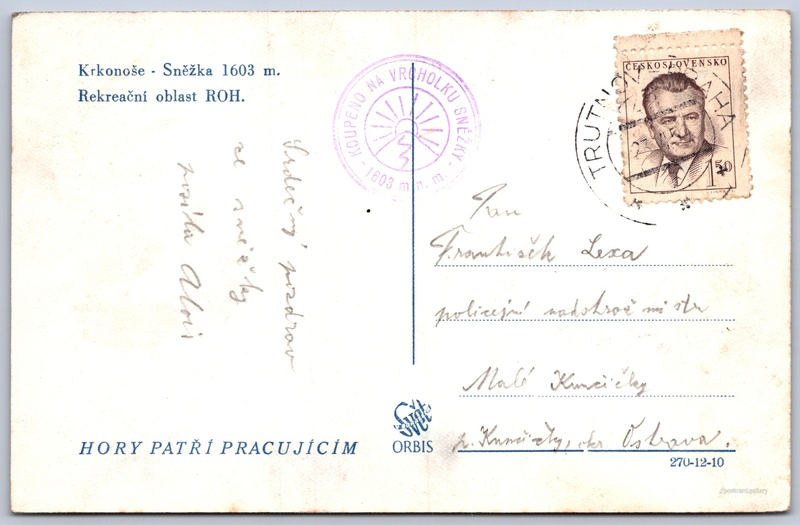 Krkonoše - Sněžka 1603 m.
Rekreační oblast ROH.
KOUPENO NA VRCHOLKU SNĚŽKY
1603 m n. m.
ČESKOSLOVENSKO
1 50
TRUTNOV PRAHA
Srdečný pozdrav
ze sněžky
posílá Alois
Pan
František Lexa
policejní nadstráž mistr
Malé Kunčičky
p. Kunčičky, okr Ostrava.
HORY PATŘÍ PRACUJÍCÍM
Svět
ORBIS
270-12-10